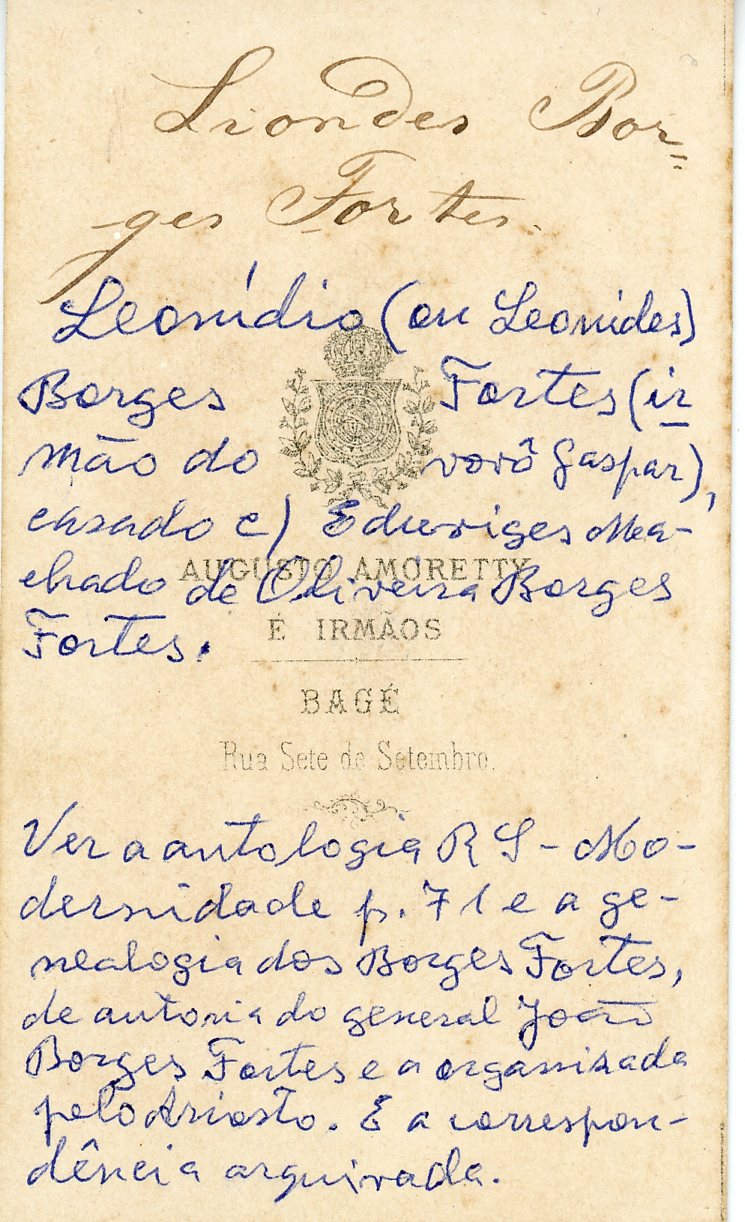 Liondes Bor=
ges Fortes.
Leonídio (ou Leonides)
Borges Fortes (ir
mão do vovô Gaspar),
casado c/ Eduviges Ma-
chado de Oliveira Borges
AUGUSTO AMORETTY
Fortes.
É IRMÃOS
BAGÉ
Rua Sete de Setembro.
Ver a antologia RS - Mo-
dernidade p. 71 e a ge-
nealogia dos Borges Fortes,
de autoria do general João
Borges Fortes e a organizada
pelo Ariosto. E a correspon-
dência arquivada.